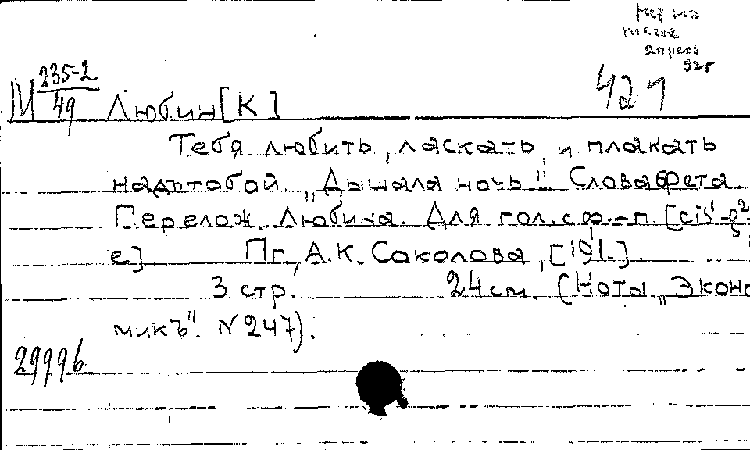 421
М 235-2
49
Любин [К]
Тебя любить, ласкать и плакать
надътобой. „Дышала ночь". Слова Фета.
Перелож. Любина. Для гол. с ф.-п. [cis¹-g²
e] Пг, А.К. Соколова, [191.]
3 стр. 24 см. (Нота „Эконо
микъ" N 247).
29996